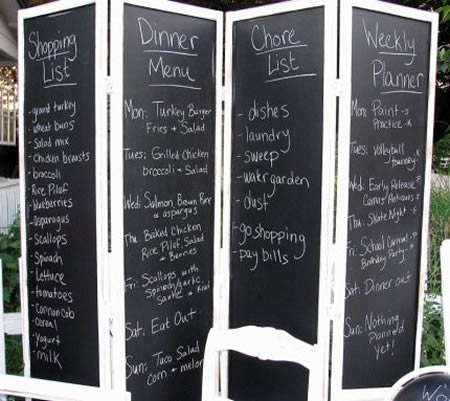 Shopping
List
- ground turkey
- wheat buns
- Salad mix
- Chicken breasts
- broccoli
- Rice Pilaf
- blueberries
- asparagus
- Scallops
- Spinach
- Lettuce
- tomatoes
- Corn on cob
- Cereal
- Yogurt
- milk
Dinner
Menu
Mon: Turkey Burger
Fries + Salad
Tues: Grilled Chicken
broccoli + Salad
Wed: Salmon, Brown Rice
+ aspargus
Thu: Baked Chicken
Rice Pilaf, Salad
+ Berries
Fri: Scallops with
Spinach/garlic
Sat: Eat Out
Sun: Taco Salad
corn + melon
Chore
List
- dishes
- laundry
- sweep
- watr garden
- dust
- go shopping
- pay bills
Weekly
Planner
Mon: Paint -s
Practice -K
Tues: Volleyball
tourney -K
Wed: Early Release
Thu: Skate Night
Fri: School Carnval
Birthday Party
Sat: Dinner out
Sun: Nothing
Planned
yet!